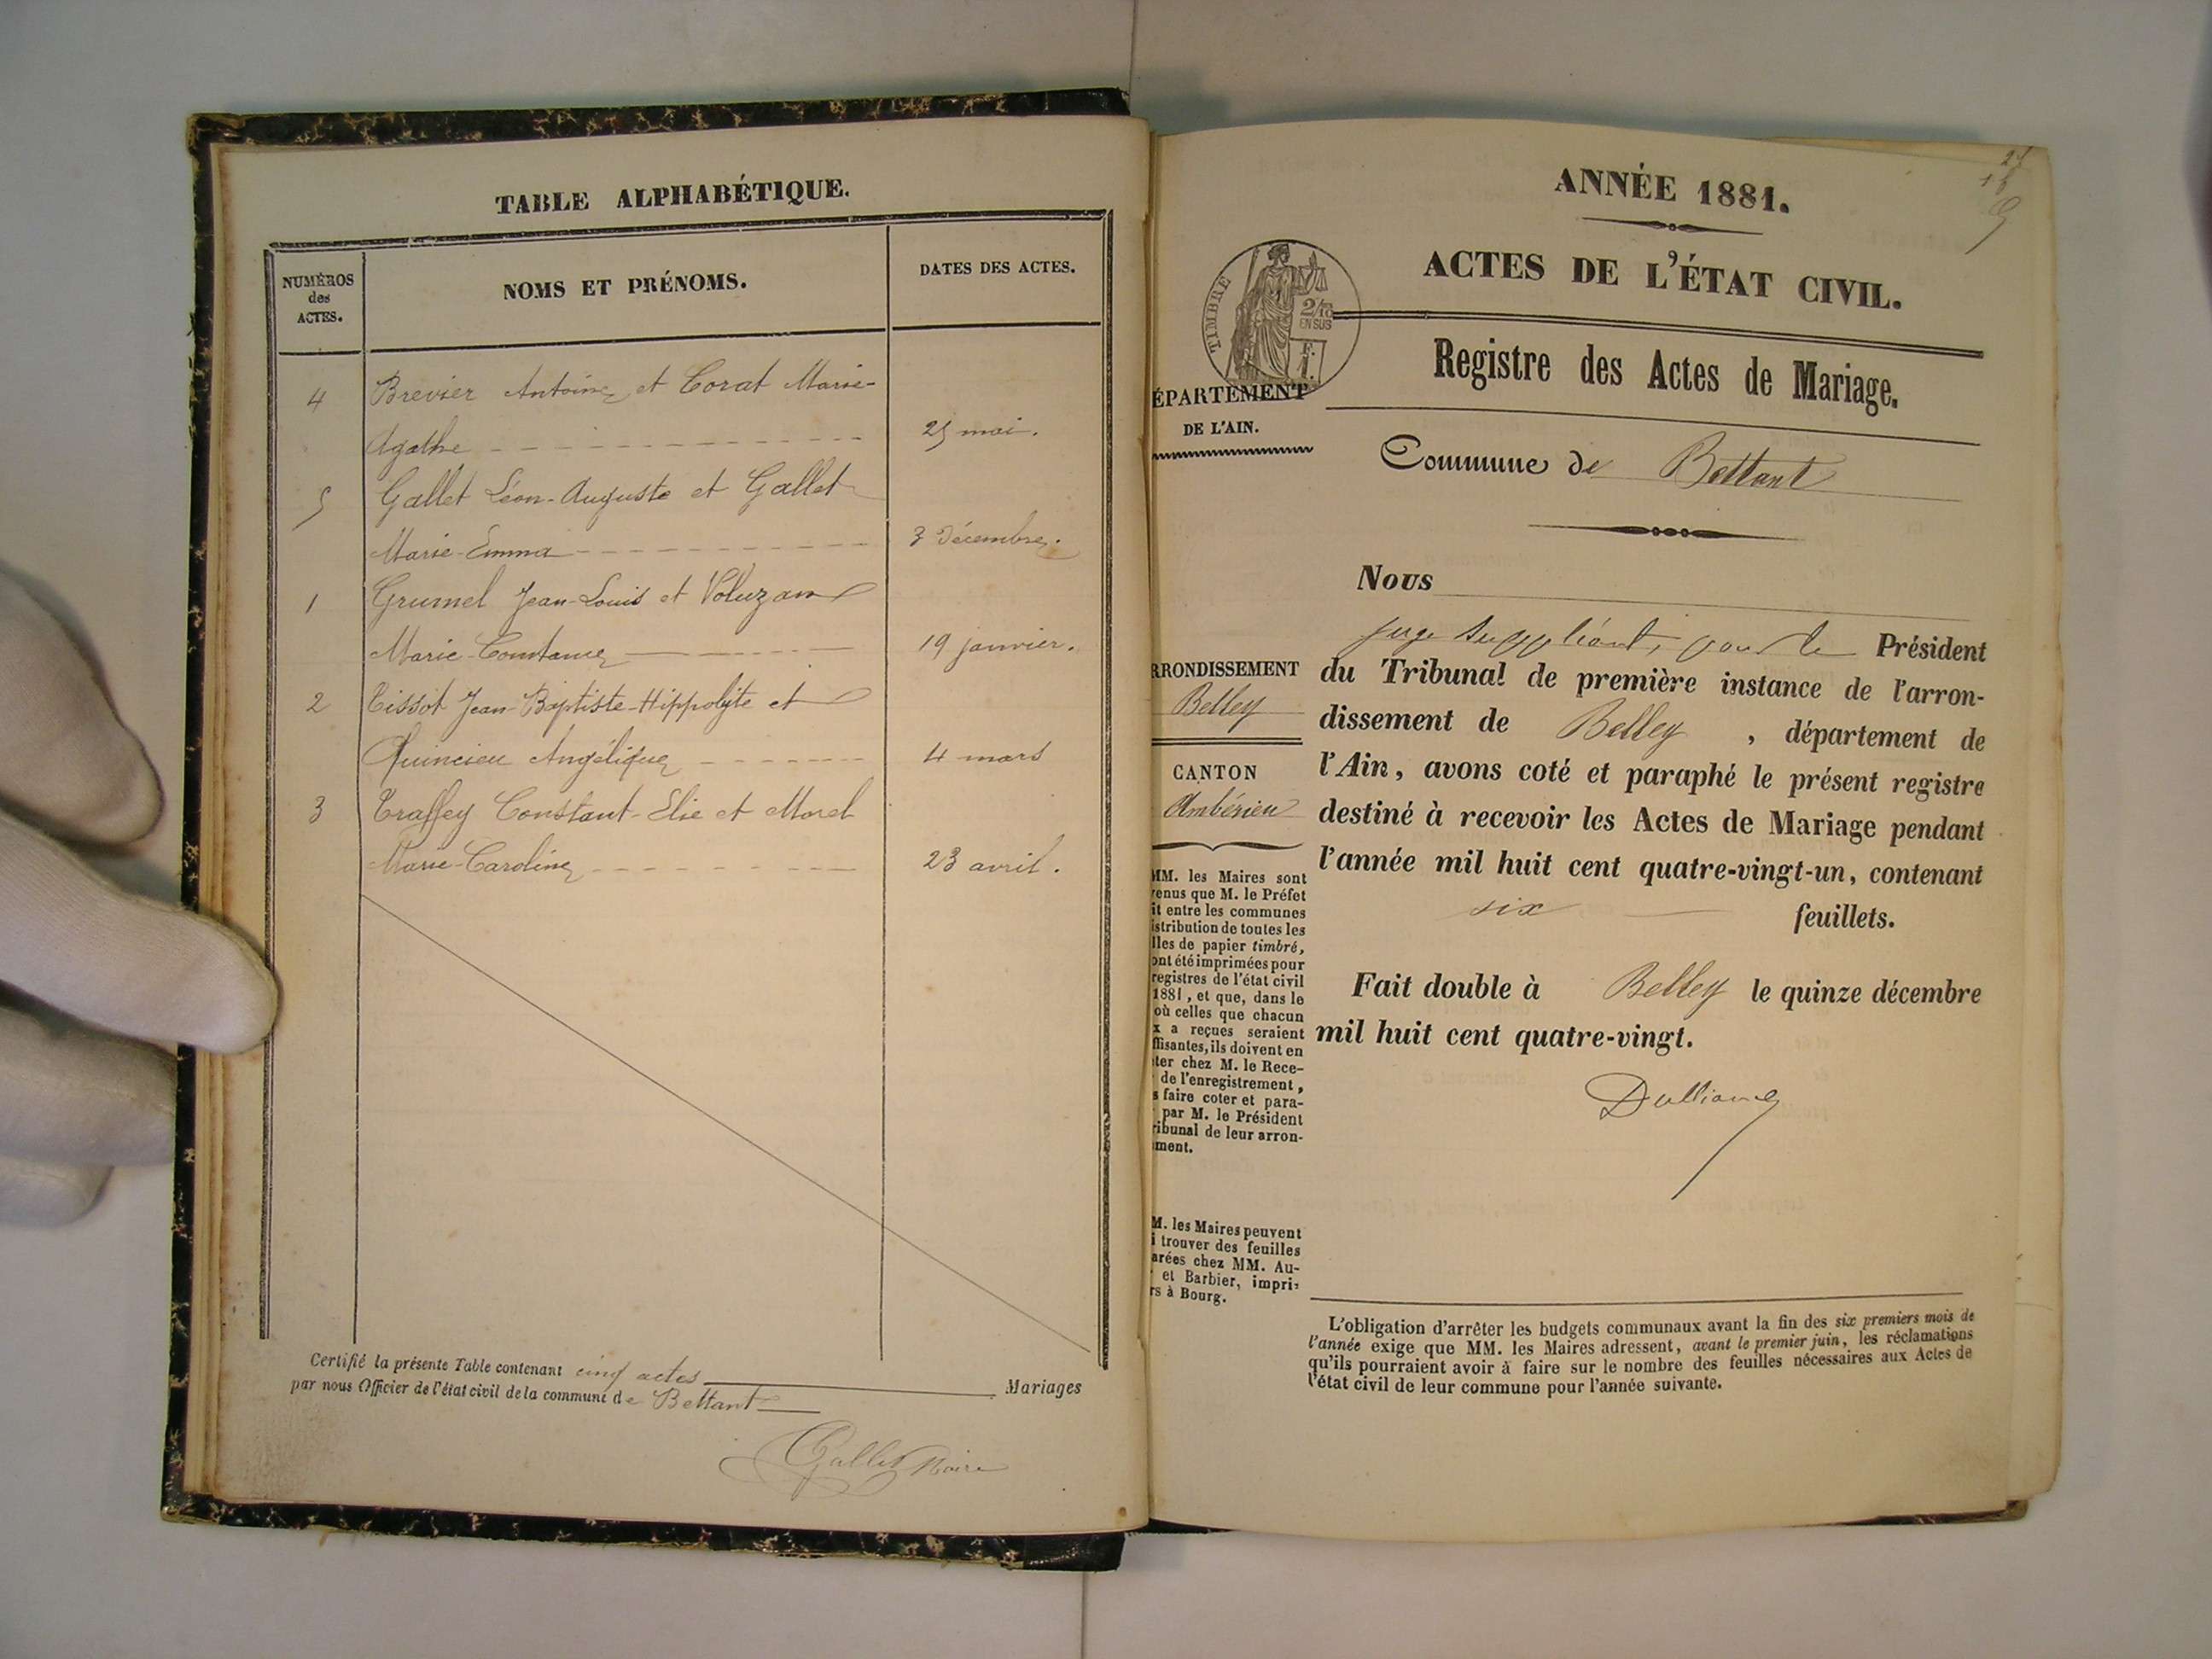 TABLE ALPHABÉTIQUE.
NUMÉROS
des
ACTES.
NOMS ET PRÉNOMS.
DATES DES ACTES.
4 Brevier Antoine et Corat Marie-
Agathe 25 mai.
5 Gallet Léon-Auguste et Gallet
Marie-Emma 3 Décembre.
1 Grumel Jean-Louis et Voluzan
Marie-Constance 19 janvier.
2 Tissot Jean-Baptiste-Hippolyte et
Quincieu Angélique 4 mars
3 Traffey Constant-Elie et Morel
Marie-Caroline 23 avril.
Certifié la présente Table contenant cinq actes Mariages
par nous Officier de l'état civil de la commune de Bettant
Gallet Maire
ANNÉE 1881.
ACTES DE L'ÉTAT CIVIL.
TIMBRE
2/10
EN SUS
F.
1.
Registre des Actes de Mariage.
ÉPARTEMENT
DE L'AIN.
Commune de Bettant
Nous
juge suppléant, pour le Président
du Tribunal de première instance de l'arron-
dissement de Belley, département de
l'Ain, avons coté et paraphé le présent registre
destiné à recevoir les Actes de Mariage pendant
l'année mil huit cent quatre-vingt-un, contenant
six feuillets.
Fait double à Belley le quinze décembre
mil huit cent quatre-vingt.
RRONDISSEMENT
Belley
CANTON
Ambérieu
MM. les Maires sont
venus que M. le Préfet
it entre les communes
istribution de toutes les
lles de papier timbré,
ont été imprimées pour
registres de l'état civil
1881, et que, dans le
où celles que chacun
x a reçues seraient
ffisantes, ils doivent en
ter chez M. le Rece-
de l'enregistrement,
s faire coter et para-
par M. le Président
ribunal de leur arron-
ment.
M. les Maires peuvent
i trouver des feuilles
arées chez MM. Au-
et Barbier, impri-
rs à Bourg.
L'obligation d'arrêter les budgets communaux avant la fin des six premiers mois de
l'année exige que MM. les Maires adressent, avant le premier juin, les réclamations
qu'ils pourraient avoir à faire sur le nombre des feuilles nécessaires aux Actes de
l'état civil de leur commune pour l'année suivante.